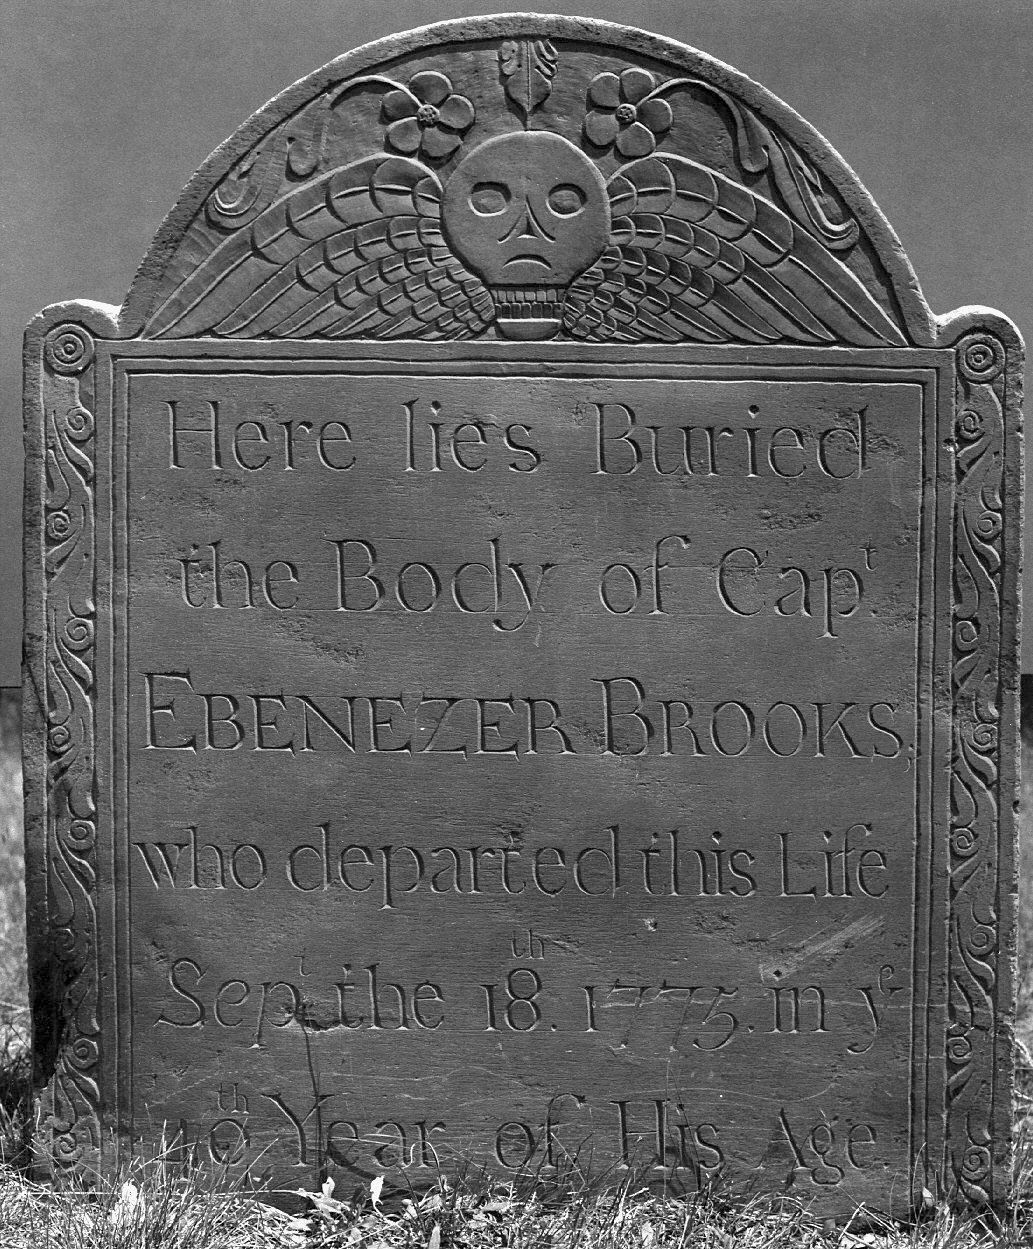 Here lies Buried
the Body of Capᵗ
EBENEZER BROOKS,
who departed this Life
Sepᵗ the 18ᵗʰ. 1775. in yᵉ
40ᵗʰ Year of His Age.